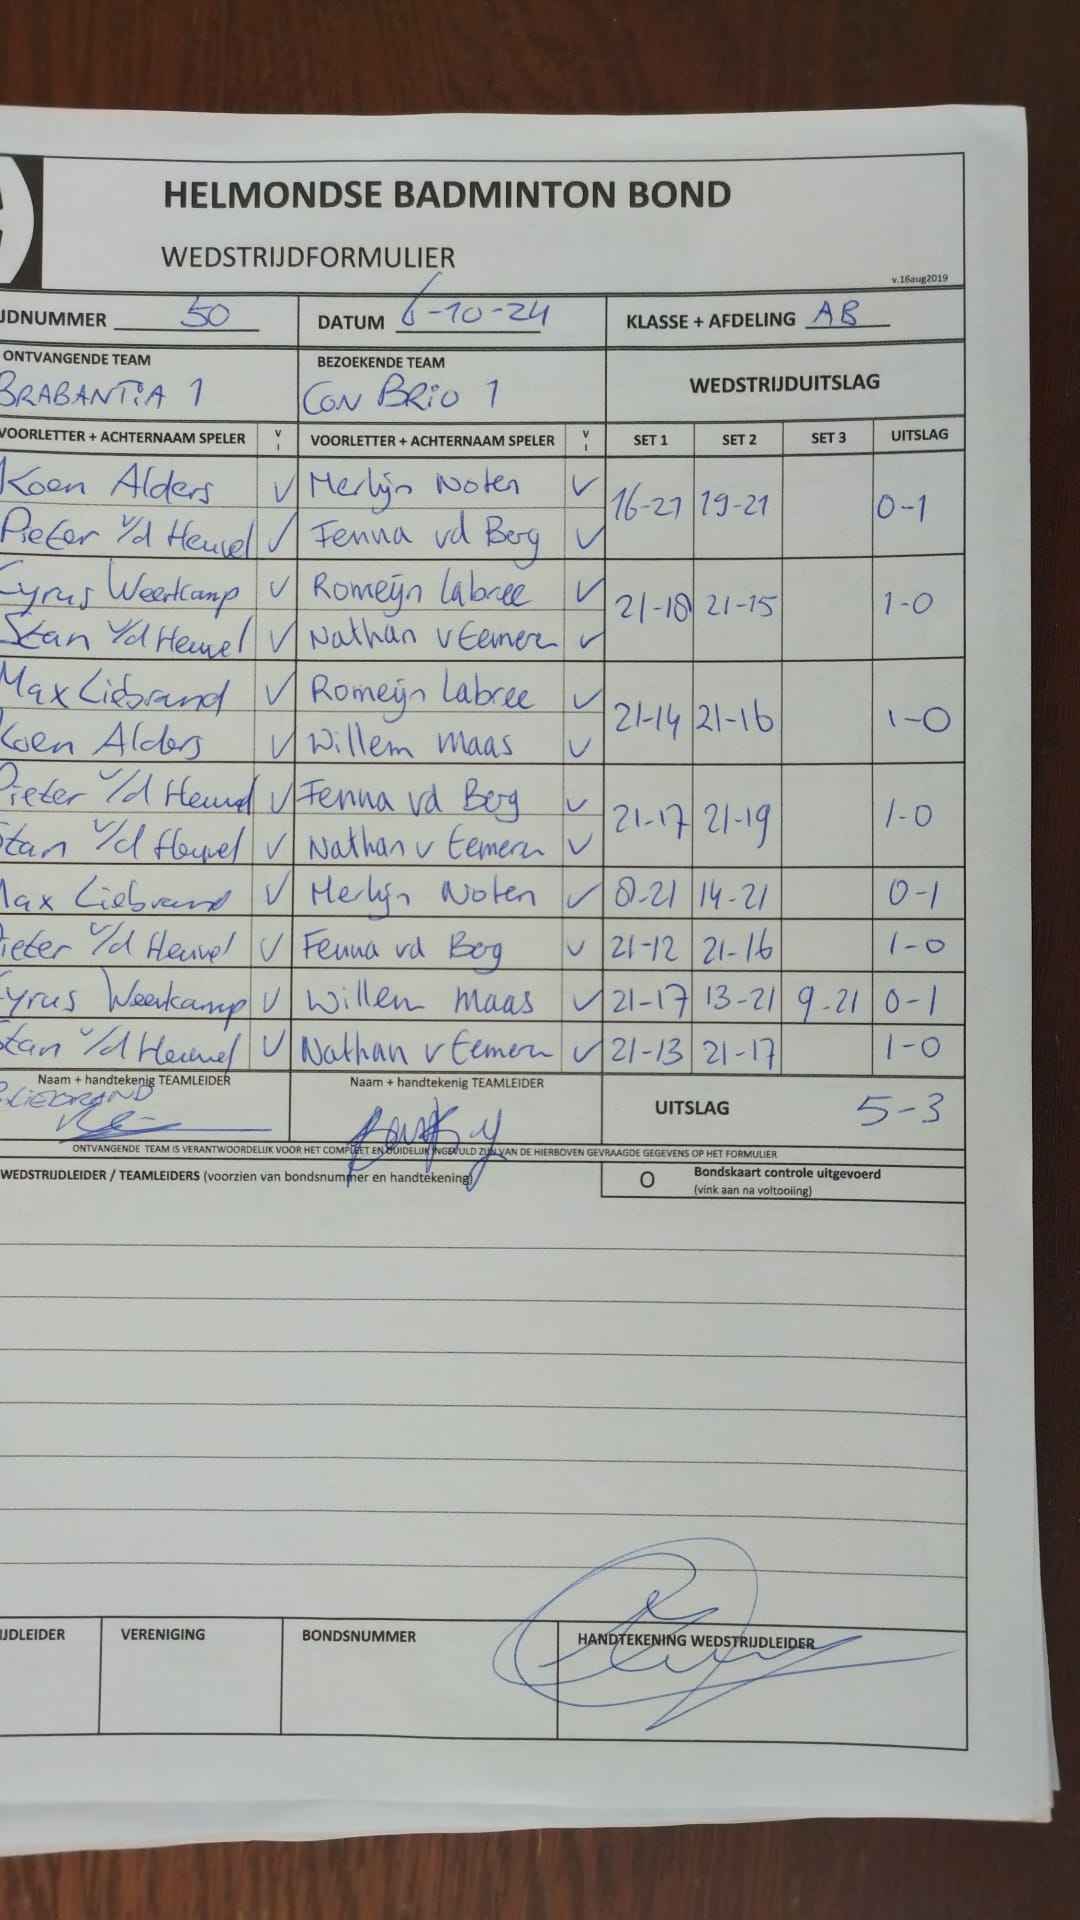 HELMONDSE BADMINTON BOND
WEDSTRIJDFORMULIER
v.16aug2019
JDNUMMER 50 DATUM 6-10-24 KLASSE + AFDELING AB
ONTVANGENDE TEAM BEZOEKENDE TEAM WEDSTRIJDUITSLAG
BRABANTIA 1 CON BRIO 1
VOORLETTER + ACHTERNAAM SPELER V I VOORLETTER + ACHTERNAAM SPELER V I SET 1 SET 2 SET 3 UITSLAG
Koen Alders V Merlijn Noten V 16-21 19-21 0-1
Pieter v/d Heuvel V Fenna vd Berg V
Cyrus Weerkamp V Romeijn Labree V 21-18 21-15 1-0
Stan v/d Heuvel V Nathan v Eemeren V
Max Liebrand V Romeijn Labree V 21-14 21-16 1-0
Koen Alders V Willem Maas V
Pieter v/d Heuvel V Fenna vd Berg V 21-17 21-19 1-0
Stan v/d Heuvel V Nathan v Eemeren V
Max Liebrand V Merlijn Noten V 8-21 14-21 0-1
Pieter v/d Heuvel V Fenna vd Berg V 21-12 21-16 1-0
Cyrus Weerkamp V Willem Maas V 21-17 13-21 9-21 0-1
Stan v/d Heuvel V Nathan v Eemeren V 21-13 21-17 1-0
Naam + handtekenig TEAMLEIDER Naam + handtekenig TEAMLEIDER UITSLAG 5-3
LIEBRAND
ONTVANGENDE TEAM IS VERANTWOORDELIJK VOOR HET COMPLEET EN DUIDELIJK INGEVULD ZIJN VAN DE HIERBOVEN GEVRAAGDE GEGEVENS OP HET FORMULIER
WEDSTRIJDLEIDER / TEAMLEIDERS (voorzien van bondsnummer en handtekening) O Bondskaart controle uitgevoerd
(vink aan na voltooiing)
IJDLEIDER VERENIGING BONDSNUMMER HANDTEKENING WEDSTRIJDLEIDER